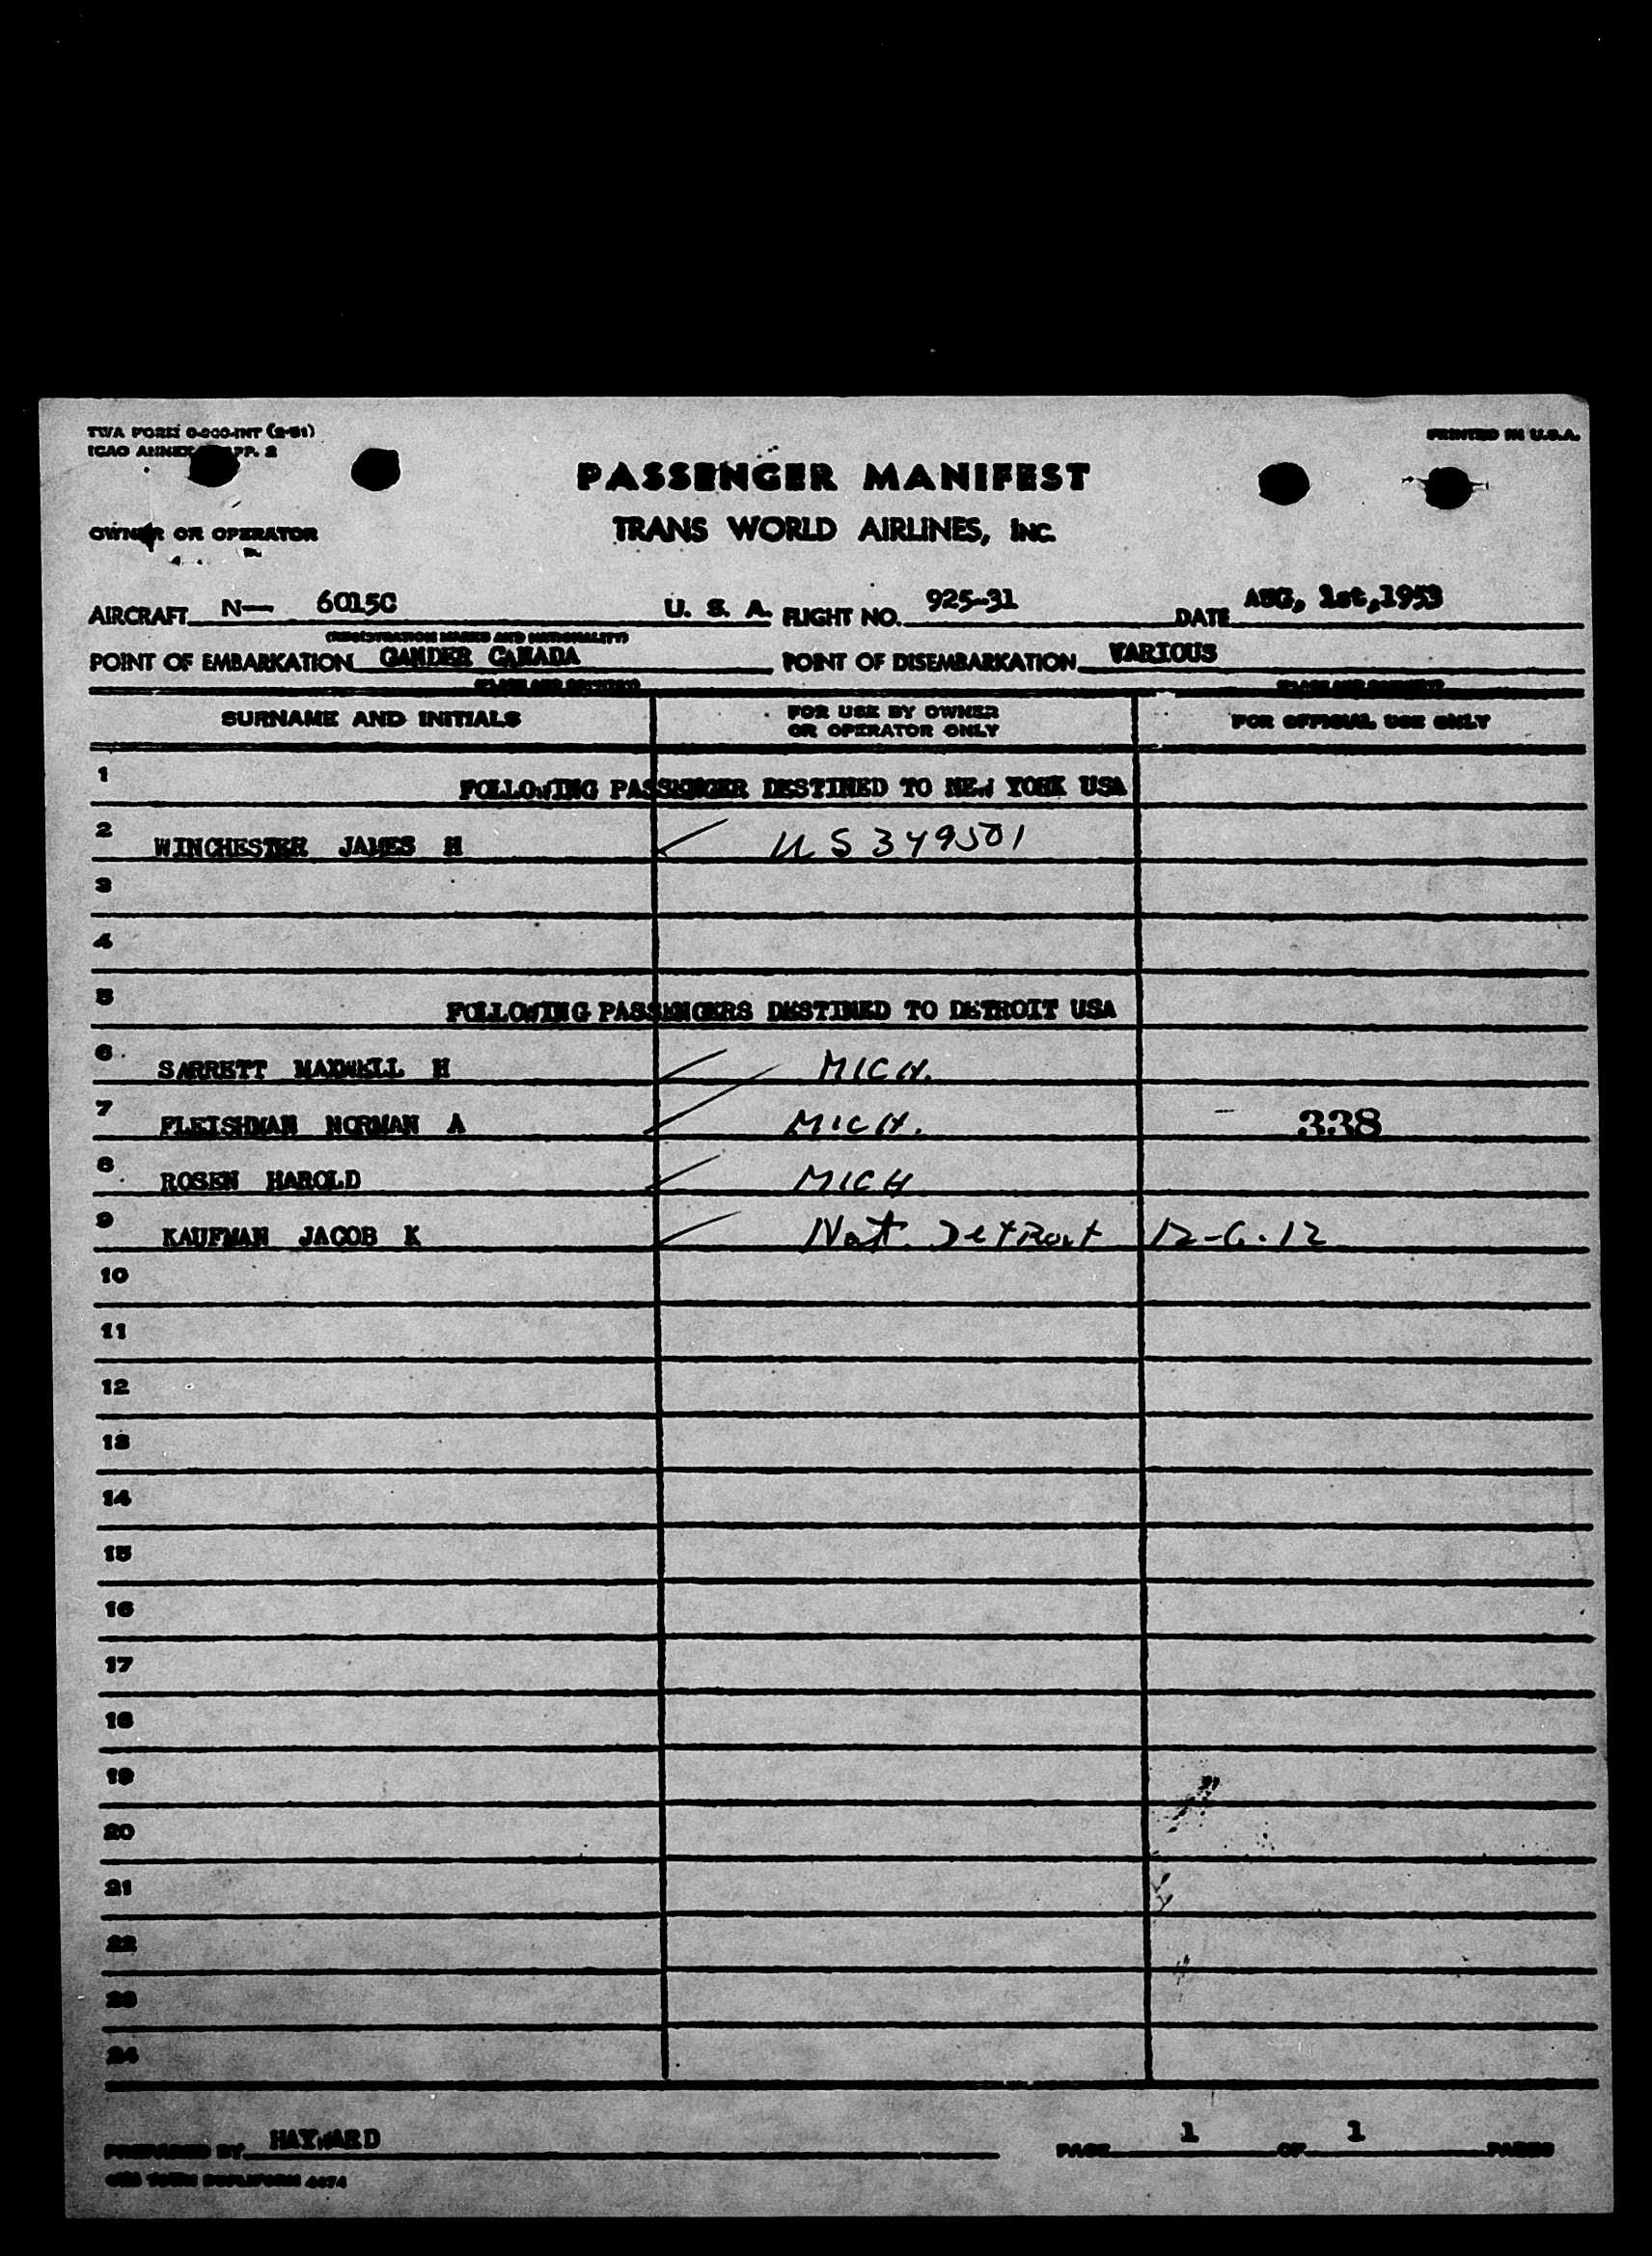 TWA FORM 0-200-INT (2-51)
PRINTED IN U.S.A.
ICAO ANNEX APP. 2
PASSENGER MANIFEST
OWNER OR OPERATOR
TRANS WORLD AIRLINES, INC.
AIRCRAFT N— 6015C U. S. A. FLIGHT NO. 925-31 DATE AUG, 1st,1953
(REGISTRATION MARKS AND NATIONALITY)
POINT OF EMBARKATION GANDER CANADA POINT OF DISEMBARKATION VARIOUS
(PLACE AND COUNTRY) (PLACE AND COUNTRY)
SURNAME AND INITIALS FOR USE BY OWNER OR OPERATOR ONLY FOR OFFICIAL USE ONLY
1 FOLLOWING PASSENGER DESTINED TO NEW YORK USA
2 WINCHESTER JAMES H US 349501
3
4
5 FOLLOWING PASSENGERS DESTINED TO DETROIT USA
6 SARRETT MAXWELL H MICH.
7 FLEISHMAN NORMAN A MICH. 338
8 ROSEN HAROLD MICH
9 KAUFMAN JACOB K Nat. Detroit 12-6-12
10
11
12
13
14
15
16
17
18
19
20
21
22
23
24
PREPARED BY HAYWARD PAGE 1 OF 1 PAGES